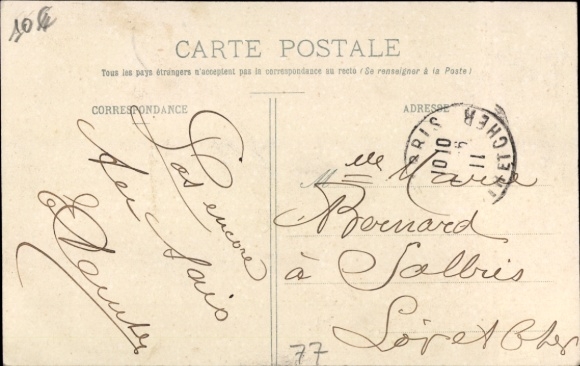 104
CARTE POSTALE
Tous les pays étrangers n'acceptent pas la correspondance au recto (Se renseigner à la Poste)
CORRESPONDANCE
ADRESSE
Pas encore
au
Mlle Marie
Bernard
à Salbris
Loir et Cher
77